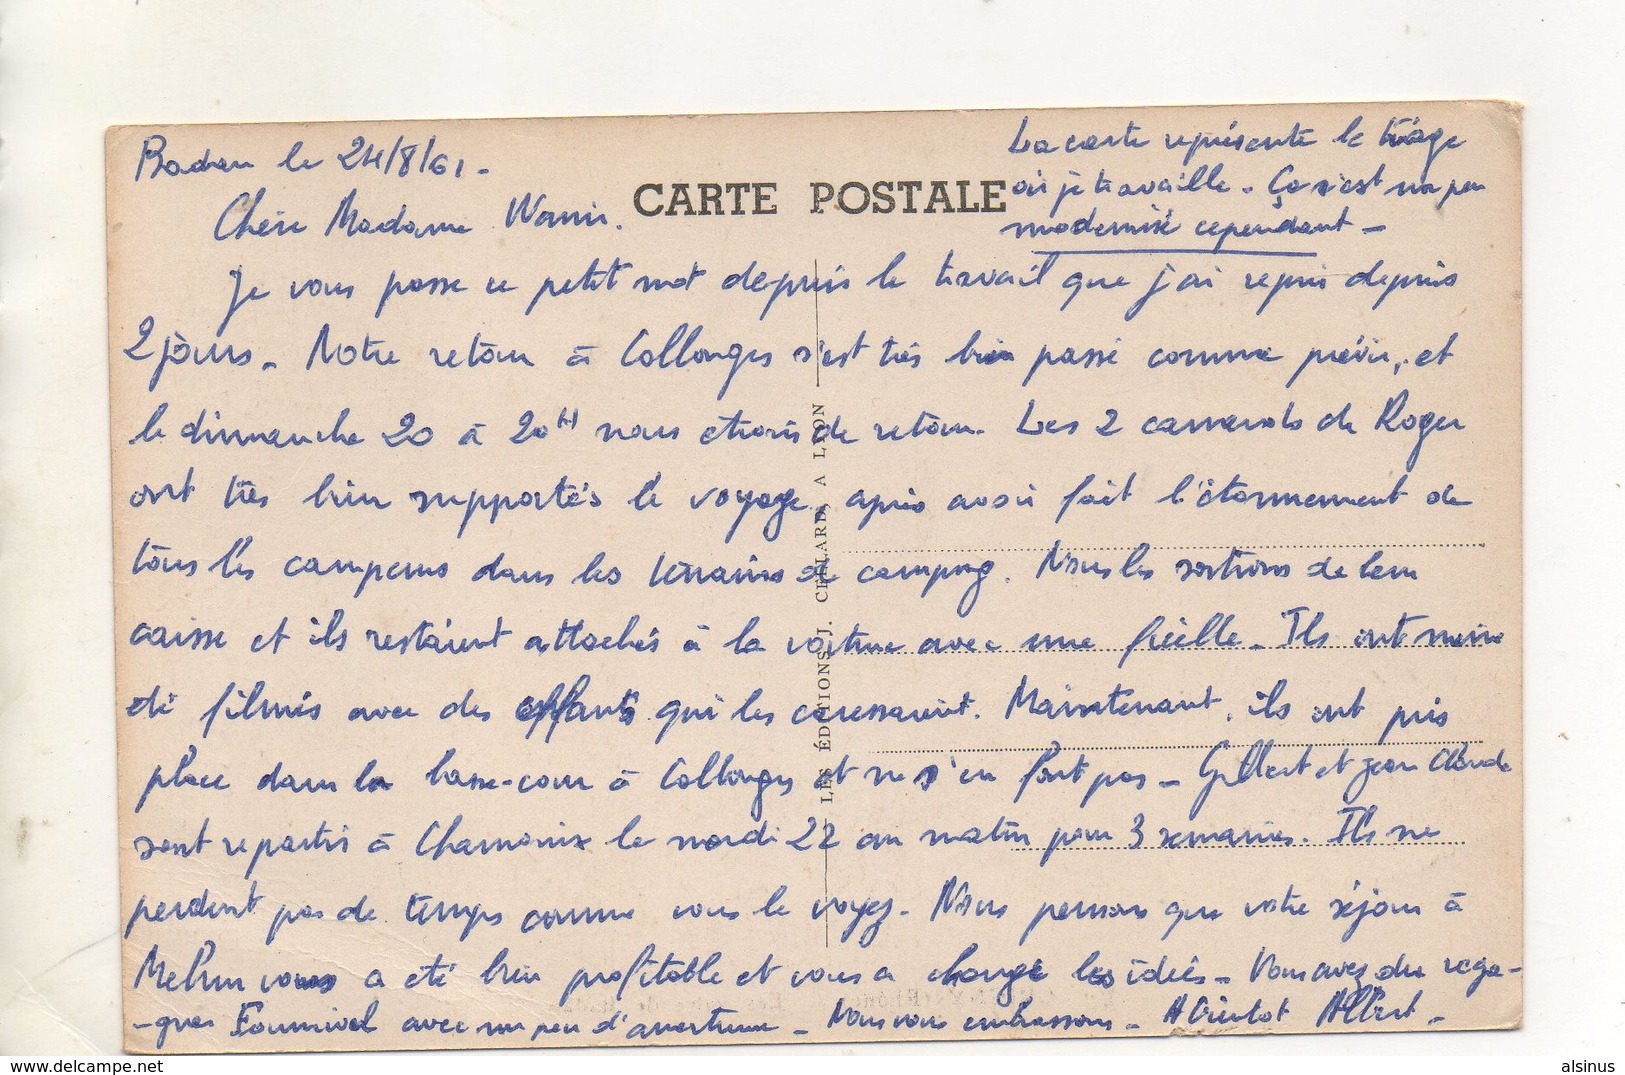 Badan le 24/8/61.
La carte représente le triage
où je travaille. Ça s'est un peu
modernisé cependant -
CARTE POSTALE
Chère Madame
Je vous passe ce petit mot depuis le travail que j'ai repris depuis
2 jours. Notre retour à Collonges s'est très bien passé comme prévu, et
le dimanche 20 à 20H nous étions de retour. Les 2 canards de Roger
ont très bien supportés le voyage après avoir fait l'étonnement de
tous les campeurs dans les terrains de camping. Nous les sortions de leur
caisse et ils restaient attachés à la voiture avec une ficelle. Ils ont même
été filmés avec des enfants qui les caressaient. Maintenant, ils ont pris
place dans la basse-cour à Collonges et ne s'en font pas - Gilbert et Jean Claude
sont repartis à Chamonix le mardi 22 au matin pour 3 semaines. Ils ne
perdent pas de temps comme vous le voyez. Nous pensons que votre séjour à
Melun vous a été bien profitable et vous a changé les idées - Vous avez du rega-
-gner avec un peu d'avertume - Nous vous embrassons - A bientôt Albert -
LES ÉDITIONS J. CELLARD, A LYON
alsinus